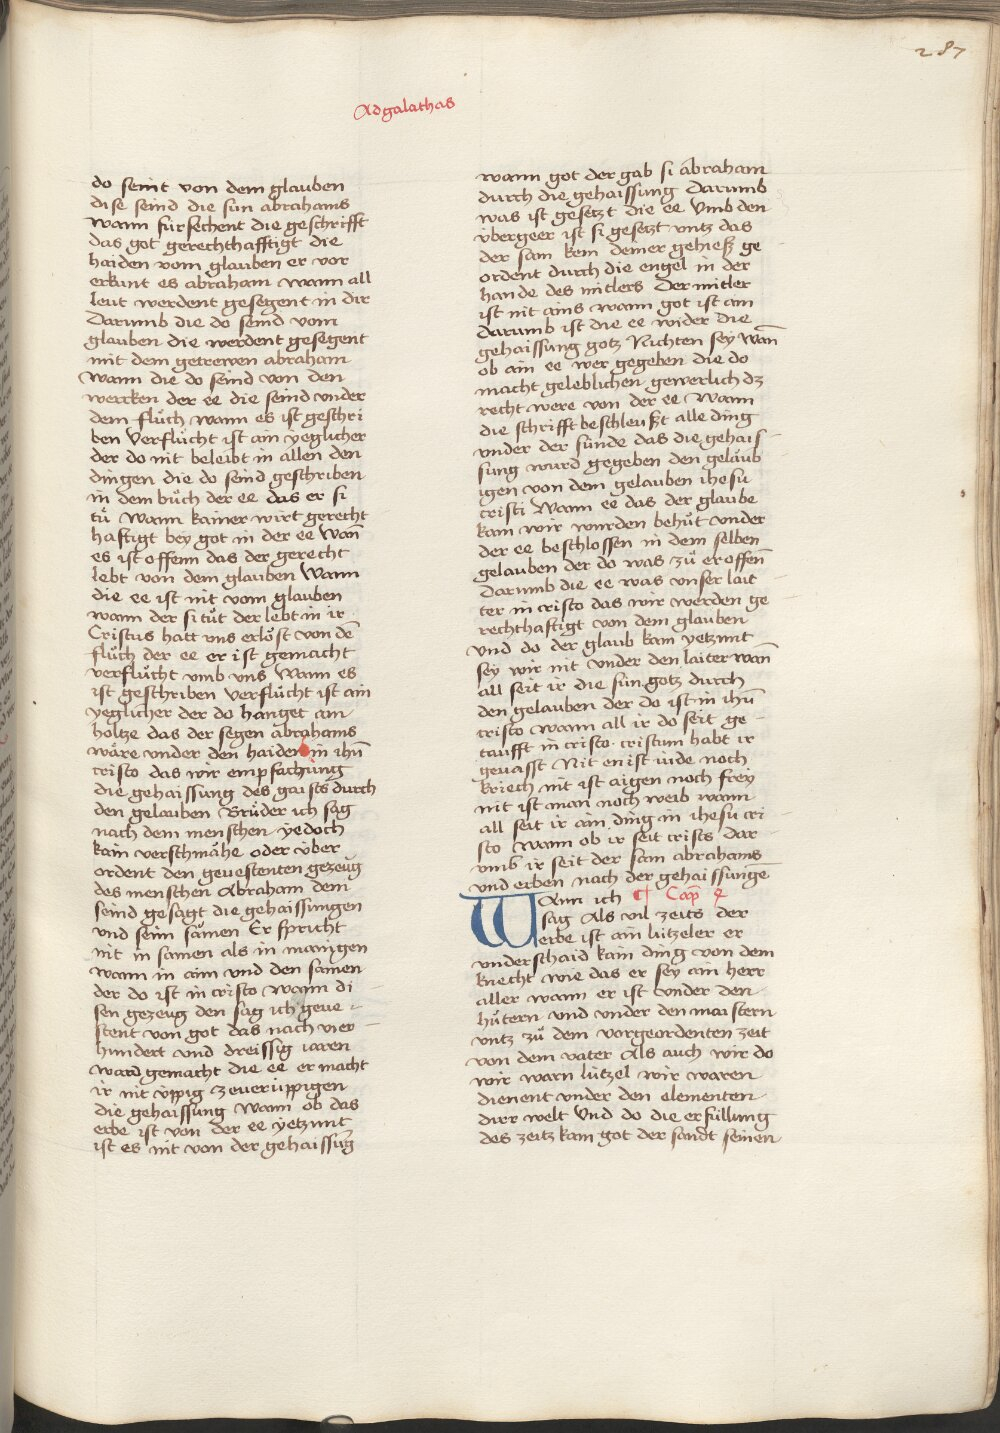 287
Ad galathas
do seint von dem glauben
dise seind die sün abrahams
wann fürsechent die geschrifft
das got gerechthafftigt die
haiden vom glauben er vor
erkunt es abraham wann all
leut werdent gesegent in dir
Darumb die do seind vom
glauben die werdent gesegent
mit dem getrewen abraham
wann die do seind von den
wercken der ee die seind vnder
dem flůch wann es ist geschri
ben verflůcht ist ain yeglicher
der do nit beleibt in allen den
dingen die do seind geschriben
in dem bůch der ee das er si
tů wann kainer wirt gerecht
hafftigt bey got in der ee wan̄
es ist offenn das der gerecht
lebt von dem glauben Wann
die ee ist nit vom glauben
wann der si tůt der lebt in ir
Cristus hatt vns erlöst von dē
flůch der ee er ist gemacht
verflůcht vmb vns Wann es
ist geschriben verflůcht ist ain
yeglicher der do hanget am
holtze das der segen abrahams
wäre vnder den haiden in ihū
cristo das wir empfachung
die gehaissung des gaists durch
den gelauben Brüder ich sag
nach dem menschen yedoch
kain verschmähe oder über
ordent den geuestenten gezeug
des menschen Abraham dem
seind gesagt die gehaissungen
vnd seim samen Er spricht
nit in samen als in manigen
wann in aim vnd den samen
der do ist in cristo wann di
sen gezeug den sag ich geue
stent von got das nach vier
hundert vnd dreissig iaren
ward gemacht die ee er macht
ir nit üppig zeuerüppigen
die gehaissung wann ob das
erbe ist von der ee yetzunt
ist es nit von der gehaissūg
wann got der gab si abraham
durch die gehaissung Darumb
was ist gesetzt die ee Vmb den
übergeer ist si gesetzt vntz das
der sam kem demer gehieß ge
ordent durch die engel in der
hande des mitlers Der mitler
ist nit ains wann got ist ain
darumb ist die ee wider die
gehaissung gotz Nichten sey wan̄
ob ain ee wer gegeben die do
macht geleblichen gewerlich dz
recht were von der ee Wann
die schrifft beschleußt alle ding
vnder der sünde das die gehais
sung wurd gegeben den gelaub
igen von dem gelauben ihesu
cristi Wann ee das der glaube
kam wir wurden behůt vnder
der ee beschlossen in dem selben
gelauben der do was zů eroffen̄
Darumb die ee was vnser lait
ter in cristo das wir werden ge
rechthaftigt von dem glauben
vnd do der glaub kam yetzunt
sey wir nit vnder den laiter wan̄
all seit ir die sün gotz durch
den gelauben der do ist in ihū
cristo wann all ir do seit ge
taufft in cristo cristum habt ir
geuasst Nit en ist iude noch
kriech nit ist aigen noch frey
nit ist man noch weib wann
all seit ir ain ding in ihesu cri
sto wann ob ir seit crists dar
vmb ir seit der sam abrahams
vnd erben nach der gehaissunge
Wann ich ¶ Cap̄ 4
sag Als vil zeits der
erbe ist ain lützeler er
vnderschaid kain ding von dem
knecht wie das er sey ain herr
aller wann er ist vnder den
hůtern vnd vnder den maistern
vntz zů dem vorgeordenten zeit
von dem vater Als auch wir do
wir warn lützel wir waren
dienent vnder den elementen
dirr welt Vnd do die erfüllung
des zeitz kam got der sandt seinen